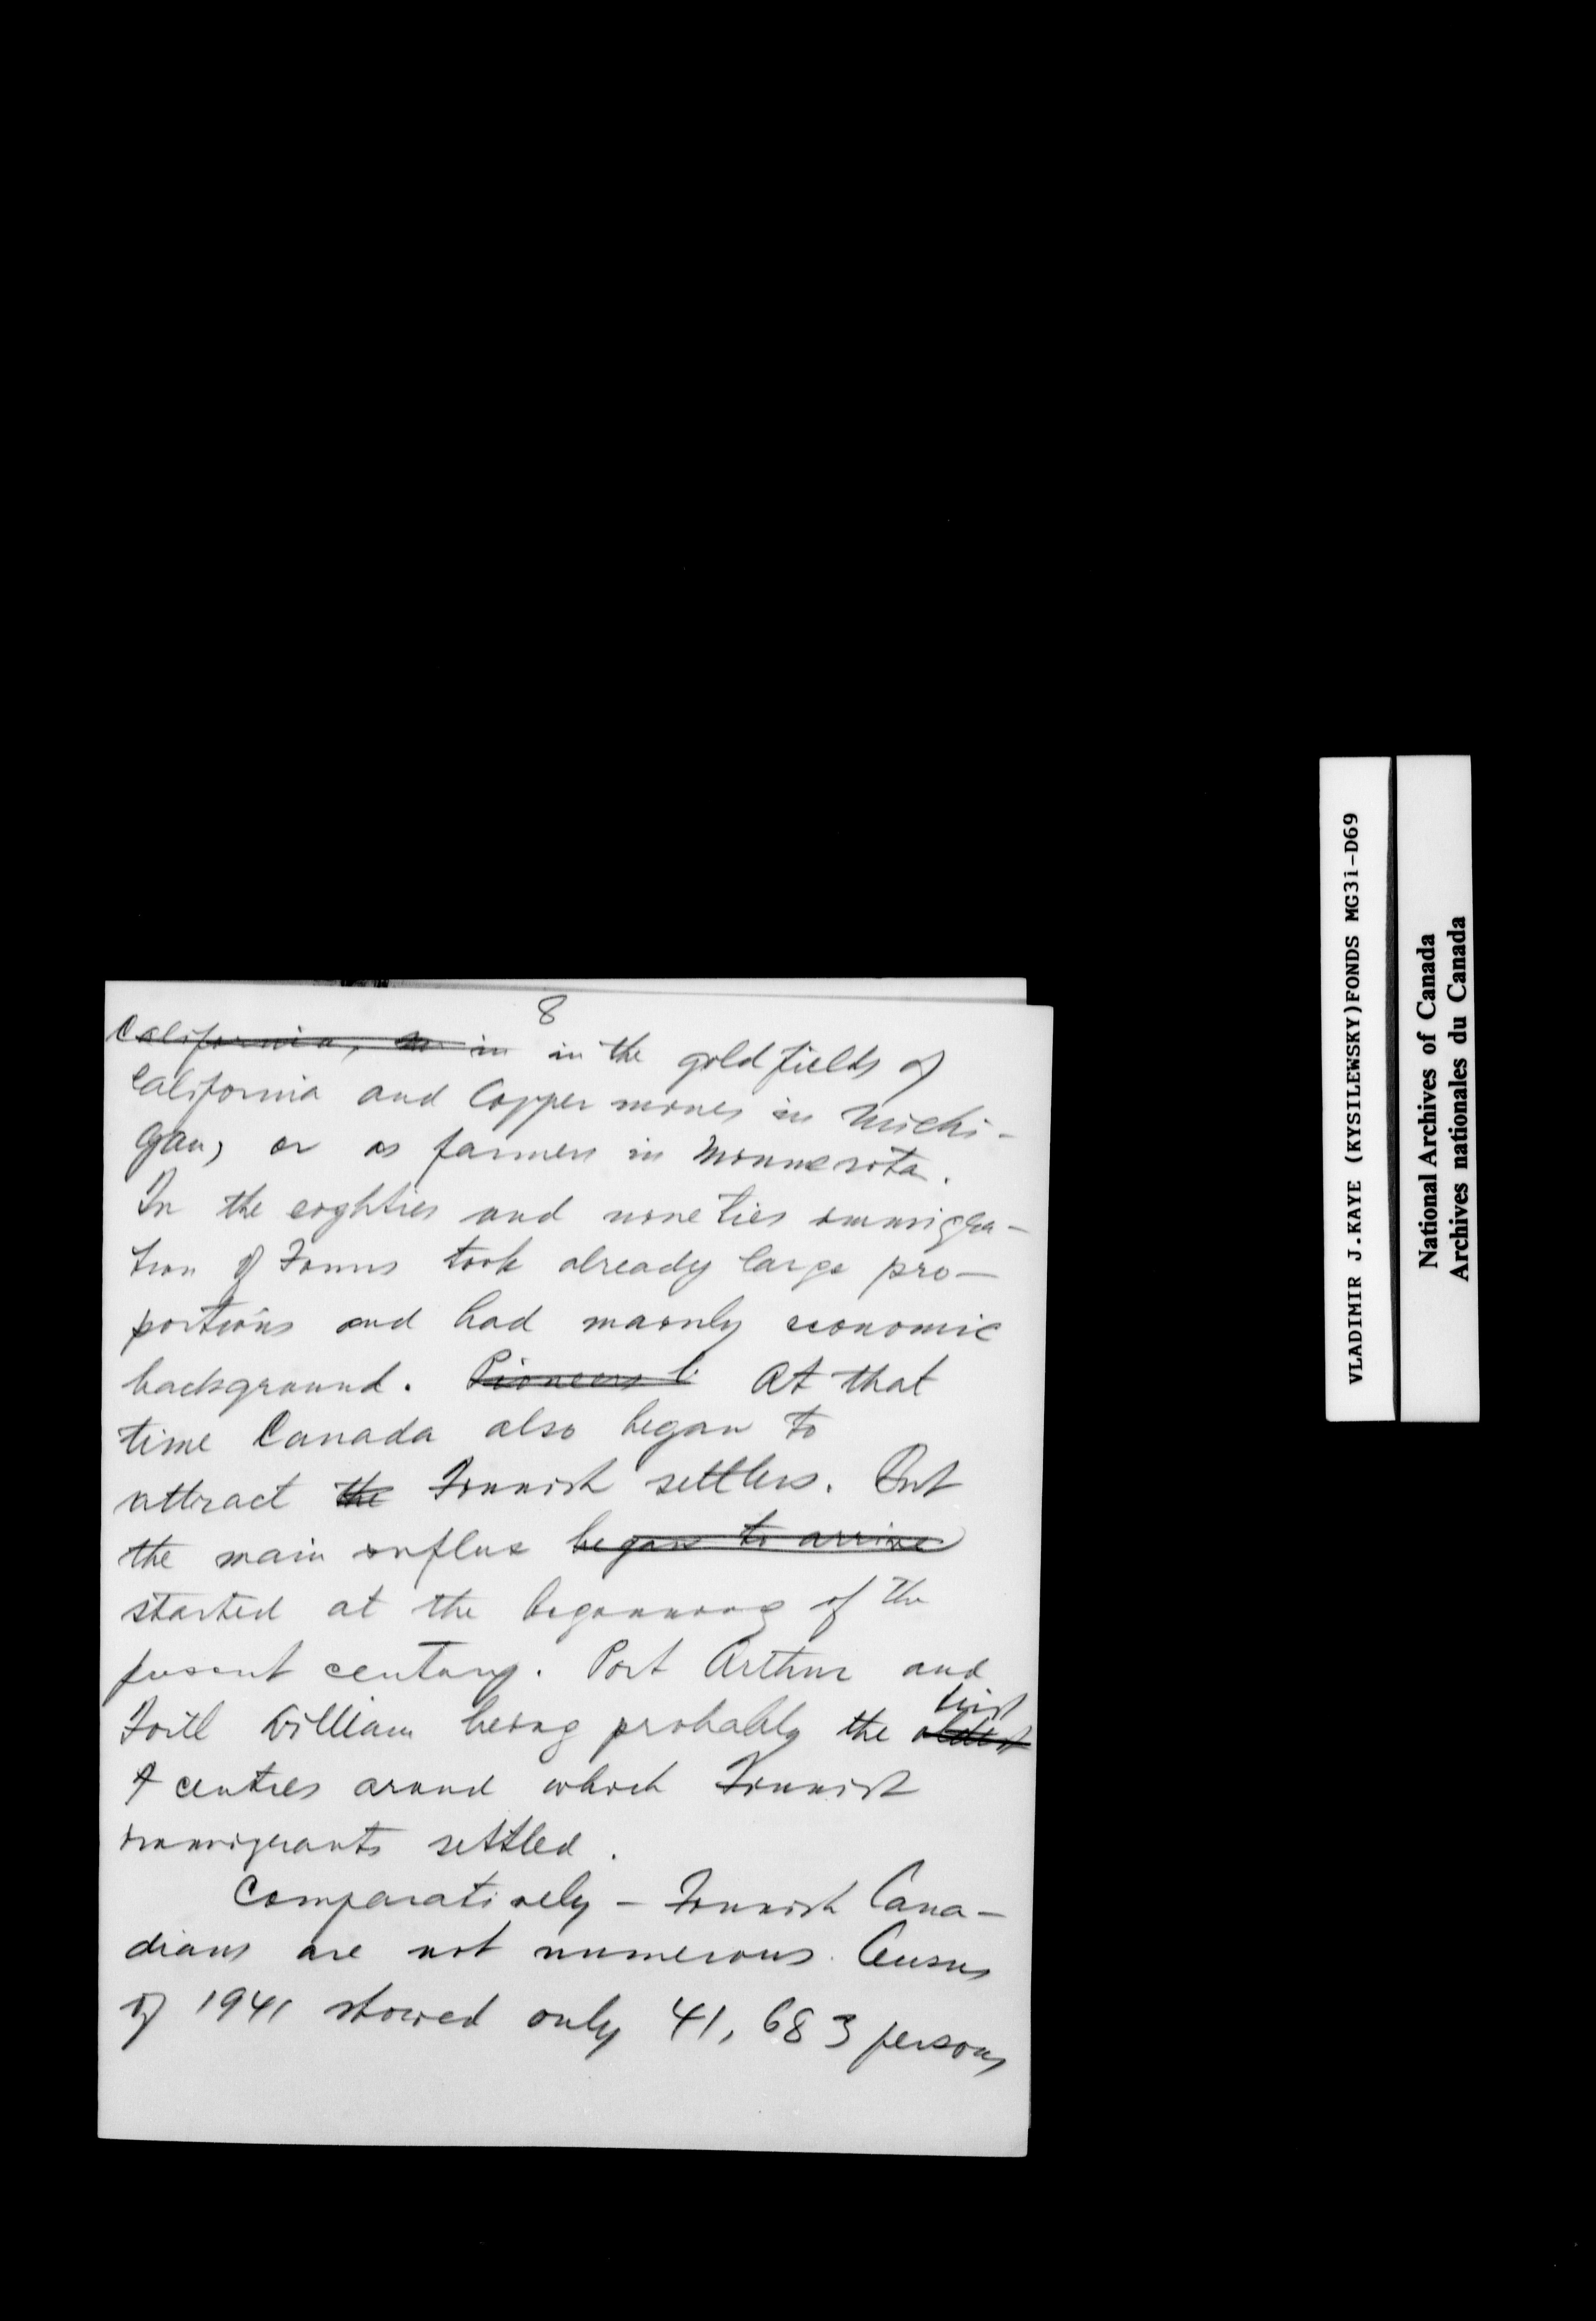 8
California, in in in the gold fields of
California and Copper mines in Michi-
gan, or as farmers in Minnesota.
In the eighties and nineties immigra-
tion of Finns took already large pro-
portions and had mainly economic
background. Pioneers b. At that
time Canada also began to
attract the Finnish settlers. But
the main influx began to arrive
started at the beginning of the
present century. Port Arthur and
first
Fort William being probably the oldest
centres around which Finnish
immigrants settled.
Comparatively – Finnish Cana-
dians are not numerous. Census
of 1941 showed only 41,683 persons
VLADIMIR J.KAYE (KYSILEWSKY)FONDS MG31-D69
National Archives of Canada
Archives nationales du Canada